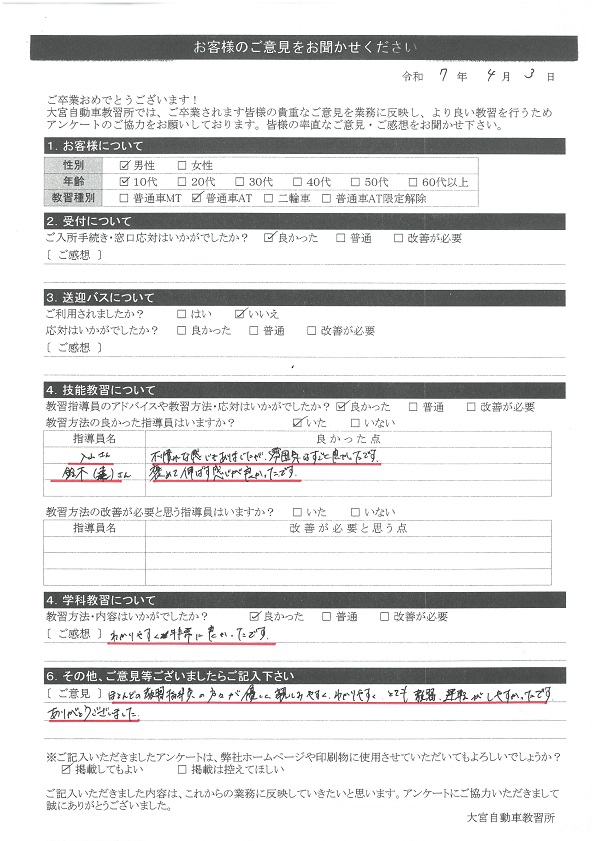 お客様のご意見をお聞かせください
令和 7 年 4 月 3 日
ご卒業おめでとうございます！
大宮自動車教習所では、ご卒業されます皆様の貴重なご意見を業務に反映し、より良い教習を行うため
アンケートのご協力をお願いしております。皆様の率直なご意見・ご感想をお聞かせ下さい。
1. お客様について
性別 ☑ 男性 □ 女性
年齢 ☑ 10代 □ 20代 □ 30代 □ 40代 □ 50代 □ 60代以上
教習種別 □ 普通車MT ☑ 普通車AT □ 二輪車 □ 普通車AT限定解除
2. 受付について
ご入所手続き・窓口応対はいかがでしたか？ ☑ 良かった □ 普通 □ 改善が必要
[ ご感想 ]
3. 送迎バスについて
ご利用されましたか？ □ はい ☑ いいえ
応対はいかがでしたか？ □ 良かった □ 普通 □ 改善が必要
[ ご感想 ]
4. 技能教習について
教習指導員のアドバイスや教習方法・応対はいかがでしたか？ ☑ 良かった □ 普通 □ 改善が必要
教習方法の良かった指導員はいますか？ ☑ いた □ いない
指導員名 良かった点
さん 不慣れな感じもありましたが、雰囲気はすごく良かったです。
鈴木( )さん 褒めて伸ばす感じが良かったです。
教習方法の改善が必要と思う指導員はいますか？ □ いた □ いない
指導員名 改善が必要と思う点
4. 学科教習について
教習方法・内容はいかがでしたか？ ☑ 良かった □ 普通 □ 改善が必要
[ ご感想 ] わかりやすく非常に良かったです。
6. その他、ご意見等ございましたらご記入下さい
[ ご意見 ] ほとんどの教習指導員の方々が優しく親しみやすく、わかりやすく とても 教習、運転がしやすかったです
ありがとうございました。
※ご記入いただきましたアンケートは、弊社ホームページや印刷物に使用させていただいてもよろしいでしょうか？
☑ 掲載してもよい □ 掲載は控えてほしい
ご記入いただきました内容は、これからの業務に反映していきたいと思います。アンケートにご協力いただきまして
誠にありがとうございました。
大宮自動車教習所